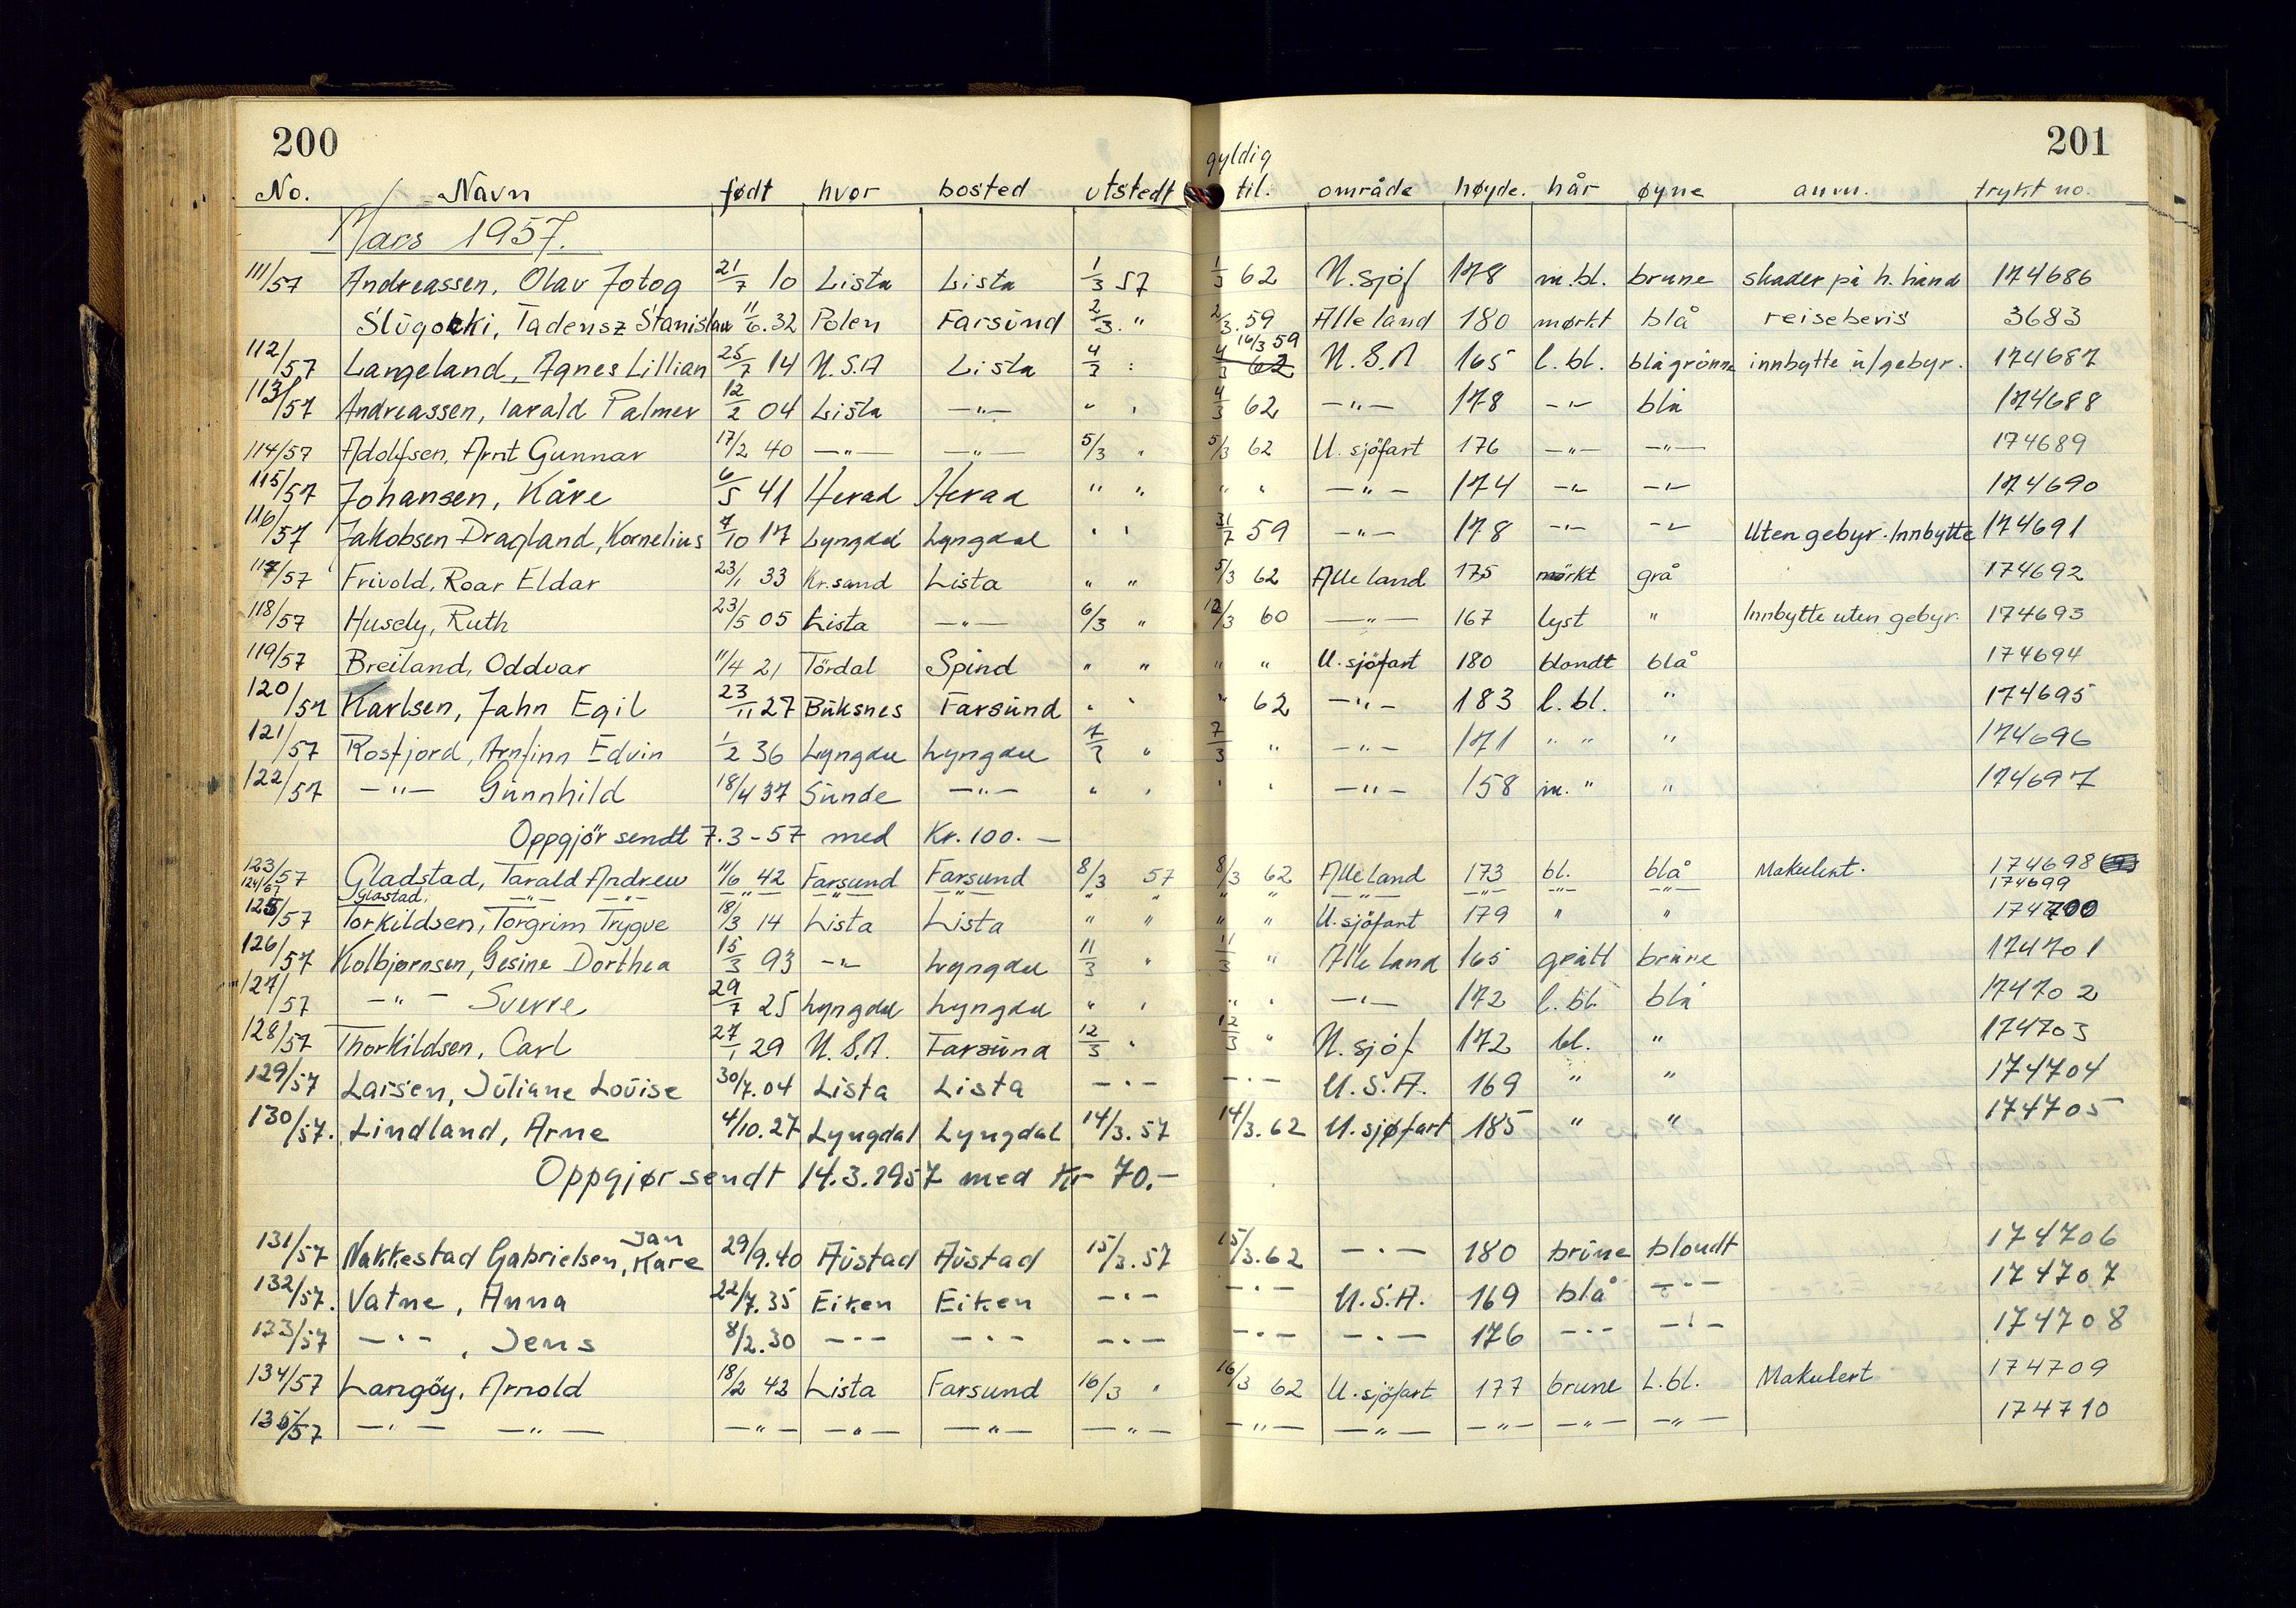 200
201
gyldig
No. Navn født hvor bosted utstedt til. område høyde. hår øyne anm. trykt no.
Mars 1957.
111/57 Andreassen, Olav Fotog 21/7 10 Lista Lista 1/3 57 1/3 62 U.sjöf 178 m.bl. brune skader på h. hånd 174686
Slugocki, Tadeusz Stanislaw 11/6.32 Polen Farsund 2/3. " 2/3.59 Alle land 180 mørkt blå reisebevis 3683
16/3 59
112/57 Langeland, Agnes Lillian 25/7 14 U.S.A Lista 4/3 : 4/3 62 U.S.A 165 l. bl. blågrönne innbytte u/gebyr. 174687
113/57 Andreassen, Tarald Palmer 12/2 04 Lista —"— " , 4/3 62 —"— 178 —"— blå 174688
114/57 Adolfsen, Arnt Gunnar 17/2 40 —"— —"— 5/3 " 5/3 62 U. sjöfart 176 —"— —"— 174689
115/57 Johansen, Kåre 6/5 41 Herad Herad " " " " —"— 174 —"— —"— 174690
116/57 Jakobsen Dragland, Kornelius 7/10 17 Lyngdal Lyngdal " " 31/7 59 —"— 178 —"— —"— Uten gebyr. Innbytte 174691
117/57 Frivold, Roar Eldar 23/1 33 Kr.sand Lista " " 5/3 62 Alle land 175 mörkt grå 174692
118/57 Husely, Ruth 23/5 05 Lista —"— 6/3 " 12/3 60 —"— 167 lyst " Innbytte uten gebyr. 174693
119/57 Breiland, Oddvar 11/4 21 Tördal Spind " " " " U. sjöfart 180 blondt blå 174694
120/57 Karlsen, Jahn Egil 23/11 27 Buksnes Farsund " " " 62 —"— 183 l. bl. " 174695
121/57 Rosfjord, Arnfinn Edvin 1/2 36 Lyngdal Lyngdal 7/3 " 7/3 " —"— 171 " " " 174696
122/57 —"— Gunnhild 18/4 37 Sunde —"— " " " " —"— 158 m. " " 174697
Oppgjör sendt 7.3-57 med Kr. 100.—
123/57 Gladstad, Tarald Andrew 11/6 42 Farsund Farsund 8/3 57 8/3 62 Alle land 173 bl. blå Makulert. 174698
124/57 Glastad, —"— —"— —"— —"— —"— " " " " —"— —"— —"— —"— 174699
125/57 Torkildsen, Torgrim Trygve 18/3 14 Lista Lista " " " " U. sjöfart 179 " " 174700
126/57 Kolbjørnsen, Gesine Dorthea 15/3 93 —"— Lyngdal 11/3 " 11/3 " Alle land 165 grått brune 174701
127/57 —"— Sverre 29/7 25 Lyngdal Lyngdal " " " " —"— 172 l. bl. blå 174702
128/57 Thorkildsen, Carl 27/1 29 U.S.A. Farsund 12/3 " 12/3 " U. sjöf 172 bl. " 174703
129/57 Larsen, Juliane Louise 30/7.04 Lista Lista —"— —"— U.S.A. 169 " " 174704
130/57. Lindland, Arne 4/10.27 Lyngdal Lyngdal 14/3.57 14/3.62 U.sjøfart 185 " " 174705
Oppgjør sendt 14.3.1957 med kr 70.—
Jan
131/57 Nakkestad Gabrielsen, Kåre 29/9.40 Austad Austad 15/3.57 15/3.62 —"— 180 brune blondt 174706
132/57. Vatne, Anna 22/7.35 Eiken Eiken —"— —"— U.S.A. 169 blå —"— 174707
133/57 —"—, Jens 8/2.30 —"— —"— —"— —"— —"— 176 —"— —"— 174708
134/57 Langöy, Arnold 18/2 42 Lista Farsund 16/3 " 16/3 62 U. sjöfart 177 brune L. bl. Makulert 174709
135/57 —"— —"— —"— —"— —"— —"— —"— —"— —"— —"— —"— 174710